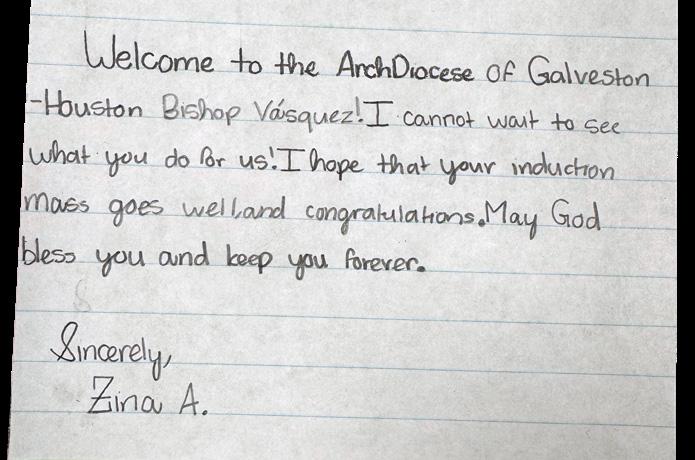 Welcome to the ArchDiocese of Galveston
-Houston Bishop Vásquez! I cannot wait to see
what you do for us! I hope that your induction
mass goes well, and congratulations. May God
bless you and keep you forever.
Sincerely,
Zina A.